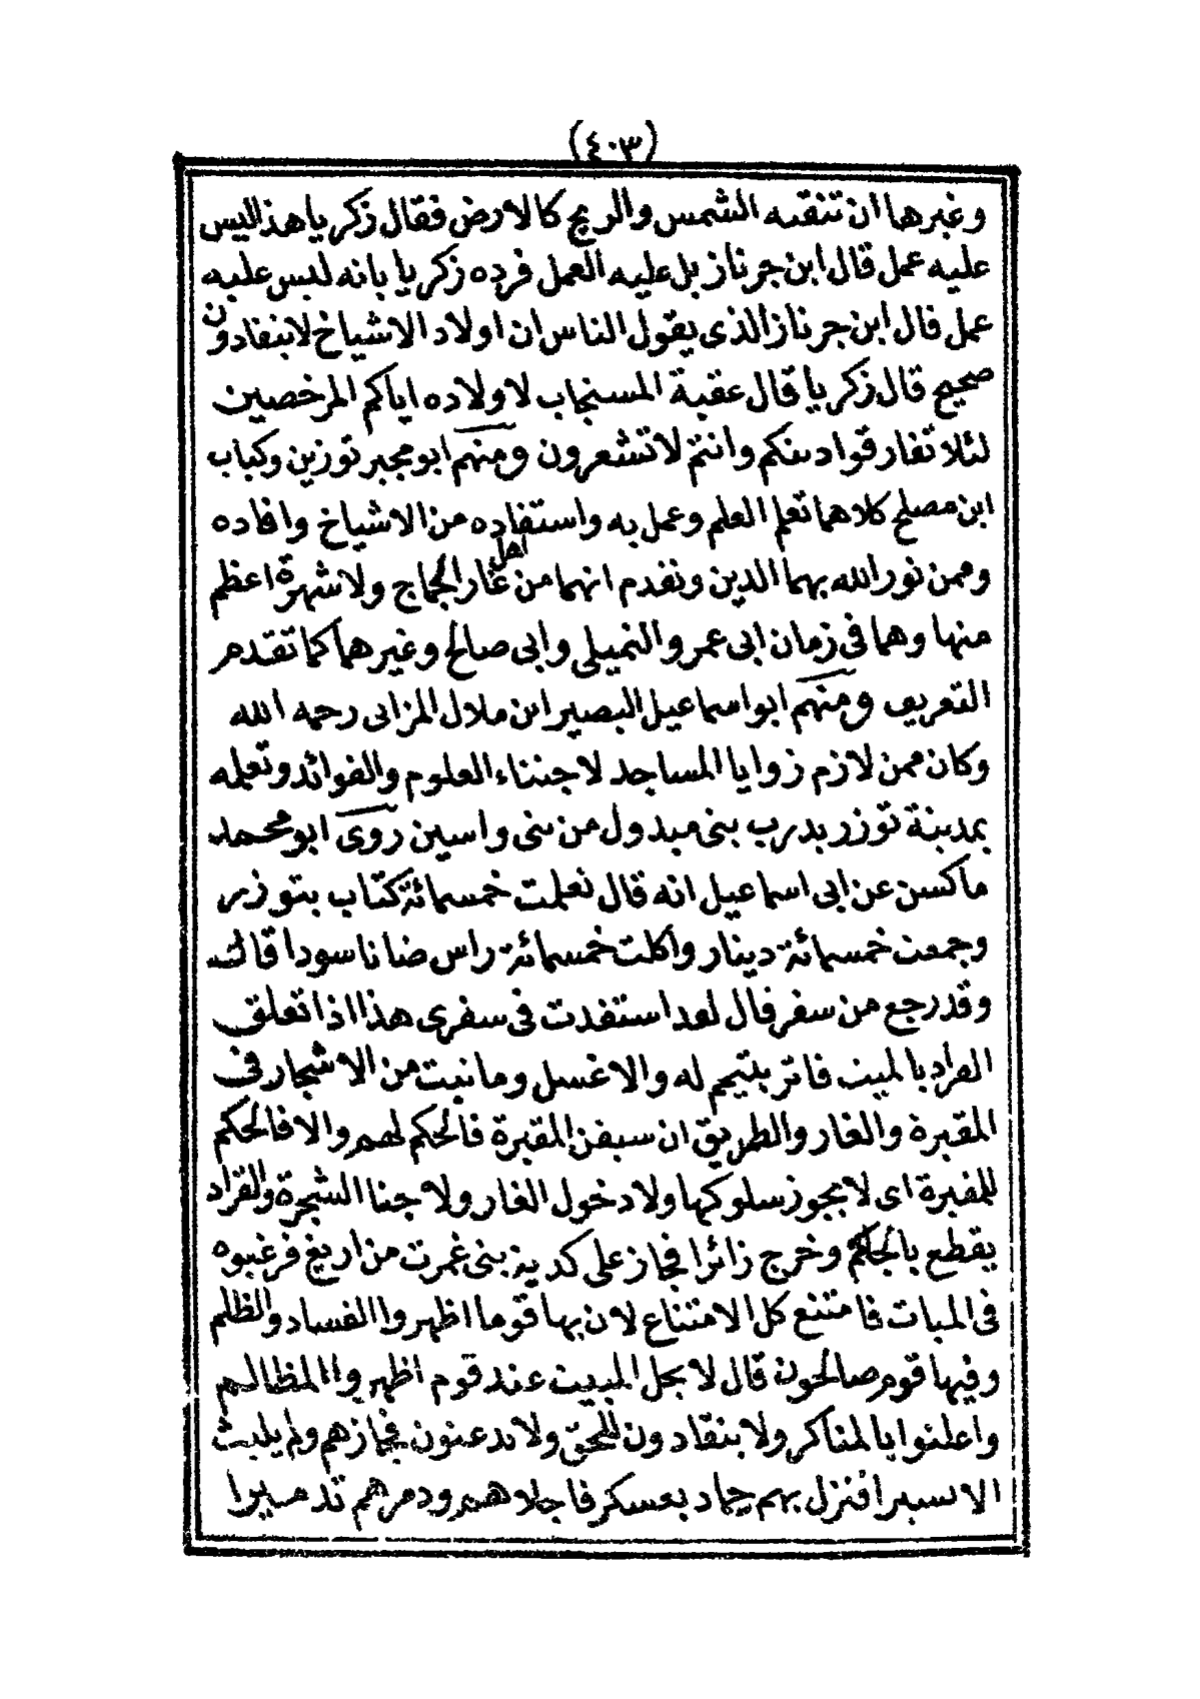 (٤٠٣)
وغيرها ان تنقيه الشمس والريح كالارض فقال زكريا هذا ليس
عليه عمل قال ابن جرناز بل عليه العمل فرده زكريا بانه ليس عليه
عمل قال ابن جرناز الذى يقول الناس ان اولاد الاشياخ لا ينقادون
صحيح قال زكريا قال عقبة المستجاب لاولاده اياكم المرخصين
لئلا تفار قوادينكم وانتم لا تشعرون ومنهم ابو مجبر توزين وكباب
ابن مصلح كلاهما تعلم العلم وعمل به واستفاده من الاشياخ وافاده
وممن نور الله بهما الدين وتقدم انهما من اهل غار الجماج ولا شهرة اعظم
منها وهما فى زمان ابى عمرو النميلى وابى صالح وغيرهما كما تقدم
التعريف ومنهم ابو اسماعيل البصير ابن ملال المزابى رحمه الله
وكان ممن لازم زوايا المساجد لاجتناء العلوم والفوائد وتعلمه
بمدينة توزر بدرب بنى ميدول من بنى واسين روى ابو محمد
ماكسن عن ابى اسماعيل انه قال تعلمت خمسمائة كتاب بتوزر
وجمعت خمسمائة دينار واكلت خمسمائة راس ضانا سودا قال
وقد رجع من سفر قال لقد استفدت فى سفرى هذا اذا تعلق
القراد بالميت فاتر بتيمم له والا غسل وما نبت من الاشجار فى
المقبرة والغار والطريق ان سبقن المقبرة فالحكم لهم والا فالحكم
للمقبرة اى لا يجوز سلوكها ولا دخول الغار ولا جنا الشجرة والقراد
يقطع بالجلم وخرج زائرا فجاز على كدية بنى غمرت من اريغ فرغبوه
فى المبات فامتنع كل الامتناع لان بها قوما اظهروا الفساد والظلم
وفيها قوم صالحون قال لا يحل المبيت عند قوم اظهروا المظالم
واعلنوا بالمناكر ولا ينقادون للحق ولا يدعنون فجازهم ولم يلبث
الا يسيرا فنزل بهم حماد بعسكر فاجلاهم ودمرهم تدميرا